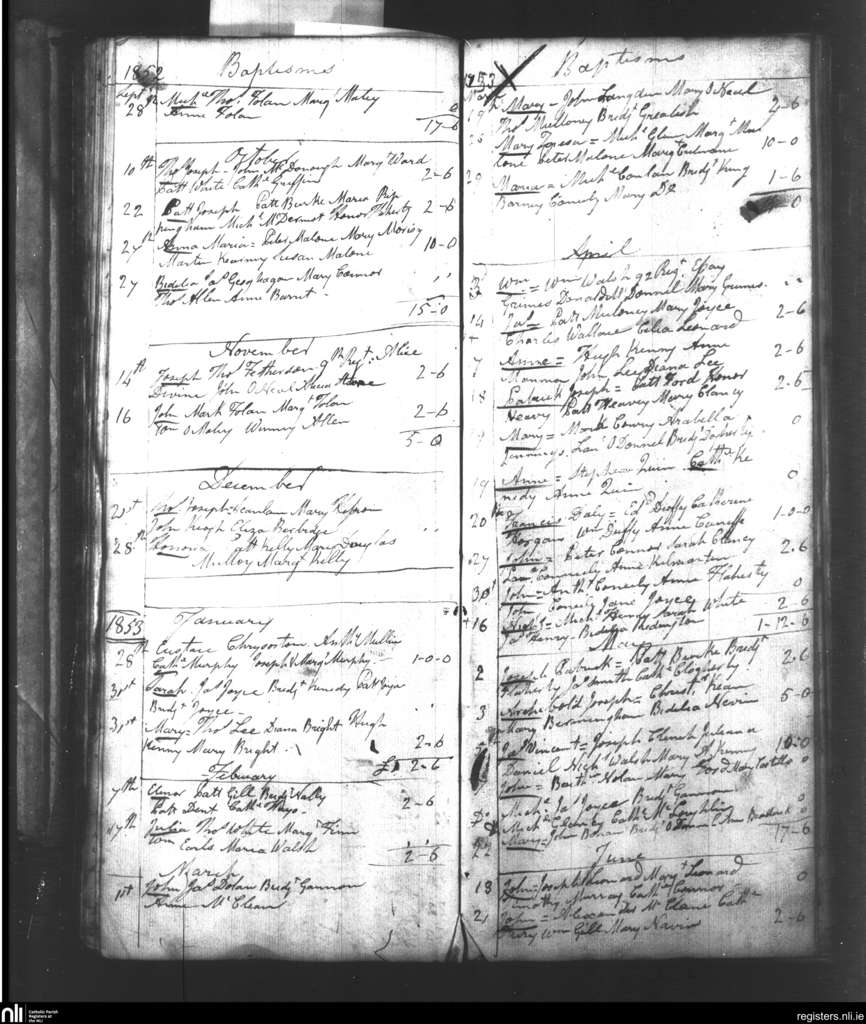 1852 Baptisms
Sept 92 Mich Thos Tolan Margt Maley
28 Anne Tolan 0
17-6
October
10th Thos Joseph = John McDonough Margt Ward
Patt White Cathe Griffin 2-6
22 Patt Joseph Patt Burke Maria Bip
pingham Michl McDermot Honor Flaherty 2-6
27th Anna Maria = Peter Malone Mary Morisy
Martin Kearny Susan Malone 10-0
27 Bidelia Jas Geoghagan Mary Connor
Thos Allen Anne Burnt - ''
15-0
November
14th Joseph Thos Fotherson 9th Regt: Alice
Devine John O Neal 2-6
16 John Mark Tolan Margt Tolan
Tom O Maley Winny Allen 2-6
5-0
December
21st Thos Joseph Scanlan Mary
John Keogh Eliza Berbridge
28th Honoria Patt Kelly Maria Douglas
Mulloy Margt Kelly
1853 January
28th Eustace Chrysostom Mullin
Cathe Murphy Joseph & Margt Murphy - 1-0-0
31st Sarah. Jas Joyce Bridgt Kenedy Patt
Bridgt Joyce -
31st Mary = Thos Lee Diana Bright Hugh
Kenny Mary Bright - 2-6
£1 2-6
February
7th Elinor Patt Gill Bridgt Nally
Patt Dent Cathe Hays - 2-6
17th Julia Thos White Margt Finn
Tom Earls Maria Walsh
2-6
March
1st John Jas Dolan Bridgt Gannon
Anne McClean
1853 Baptisms
March
19th Mary - John Langden Mary O Neal
Thos Mulloney Bridgt Grealish 2-6
Mary Teresa = Michl Margt Mar
Peter Malone Maria 10-0
20 Maria = Michl Conlan Bridgt King
Barney Comerly Mary Do 1-6
0
April
3 Wm = Wm Walsh 92 Regt. Essay
Grimes Donald McDonnel Mary Grimes.
14 Jas = Patt Muloney Mary Joyce
Charles Wallace Celia Leonard 2-6
7 Anne = Hugh Kenny Anne
Monmon John Lee Diana Lee 2-6
18 Patrick Joseph = Patt Ford Honor
Heavy Patt Heavey Mary Clancy 2-6
Mary = Mark Cowry Arabella
Jennings. Lau O Donnel Bridgt Doherty 0
19 Anne = Stephen Quin Cathe Ke
nedy Anne Quin 0
20 Francis Daly = Edd Duffy Catherine
Horgan Wm Duffy Anne 1-0-0
27 John = Peter Connor Sarah Clancy
Connerly Anne 2-6
30 John = Anthy Conerly Anne Flaherty
John Jane Joyce 0
+16 Michl = Michl Henry Sarah White
Jas Henry Bidelia Redington 2-6
1-12-6
May
2 Joseph Patrick = Patt Burke Bridgt
Flaherty Jas Smith Cathe Clogherty 2-6
3 Archibold Joseph = Christr Kean
Mary Bermingham Bidelia Nevin 5-0
Jas Vincent = Joseph French Juliana
Daniel Nichs Walsh Mary A. Kenny 10-0
John = Barthw Nolan Mary Ford Mary Costello 0
Michl Jas Joyce Bridgt Gannon
Do Michl Cleary Cathe McLoughlin 0
22 Mary = John Bohan Bridgt O Donnel Ann Braddock 0
17-6
June
18 John = Joseph Leonard Margt Leonard
Timothy Murray Cathe Connor 0
21 John = Alexander McClane Cathe
Furey Wm Gill Mary Navin 2-6
nli Catholic Parish
Registers at
the NLI
registers.nli.ie